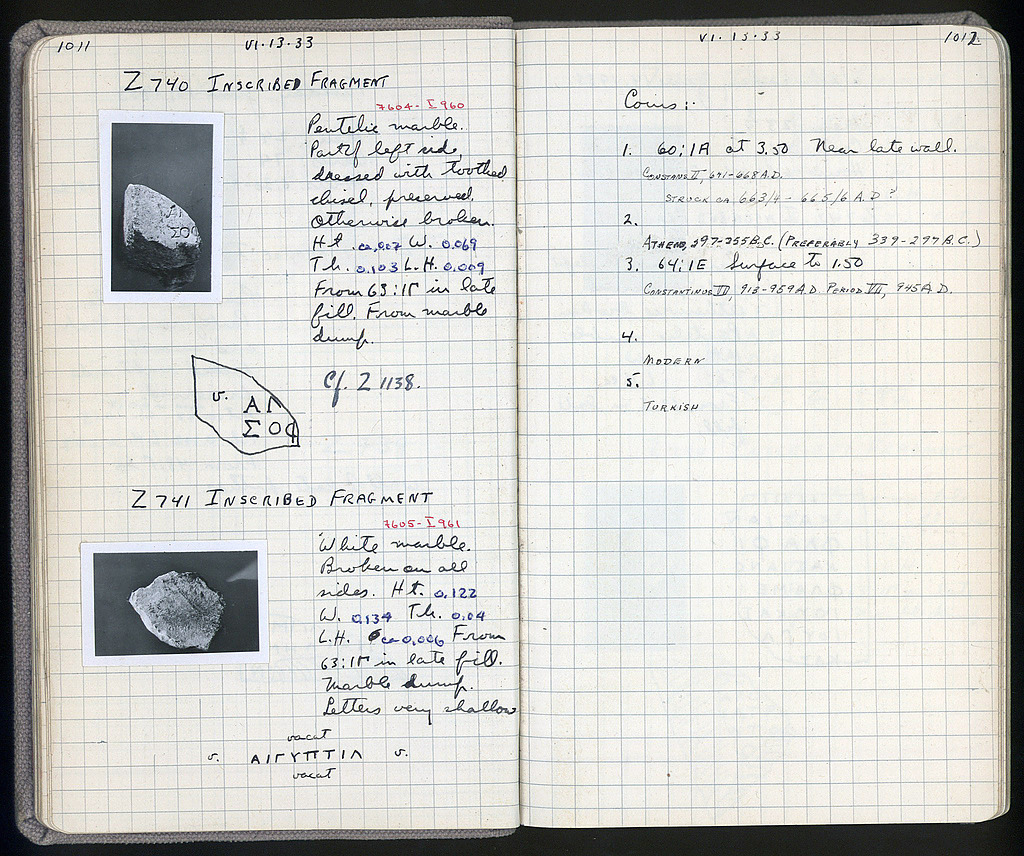 1011 VI·13·33
Z 740 INSCRIBED FRAGMENT
7604 - I 960
Pentelic marble.
Part of left side
dressed with toothed
chisel, preserved.
Otherwise broken.
Ht. W. 0.069
Th. 0.103 L.H. 0.009
From 63:ΙΓ in late
fill. From marble
dump.
Cf. Z 1138.
v. ΑΓ
ΣΟΦ
Z 741 INSCRIBED FRAGMENT
7605 - I 961
White marble.
Broken on all
sides. Ht. 0.122
W. 0.134 Th. 0.04
L.H. ca 0.006 From
63:ΙΓ in late fill.
Marble dump.
Letters very shallow
vacat
v. ΑΙΓΥΠΤΙΛ v.
vacat
VI·13·33 1012
Coins:
1. 60:ΙΑ at 3.50 Near late wall.
CONSTANS II, 641-668 A.D.
STRUCK CA 663/4 - 665/6 A.D ?
2.
ATHENS, 297-255 B.C. (PREFERABLY 339-297 B.C.)
3. 64:ΙΕ Surface to 1.50
CONSTANTINUS VII, 913-959 A.D. PERIOD VII, 945 A.D.
4.
MODERN
5.
TURKISH